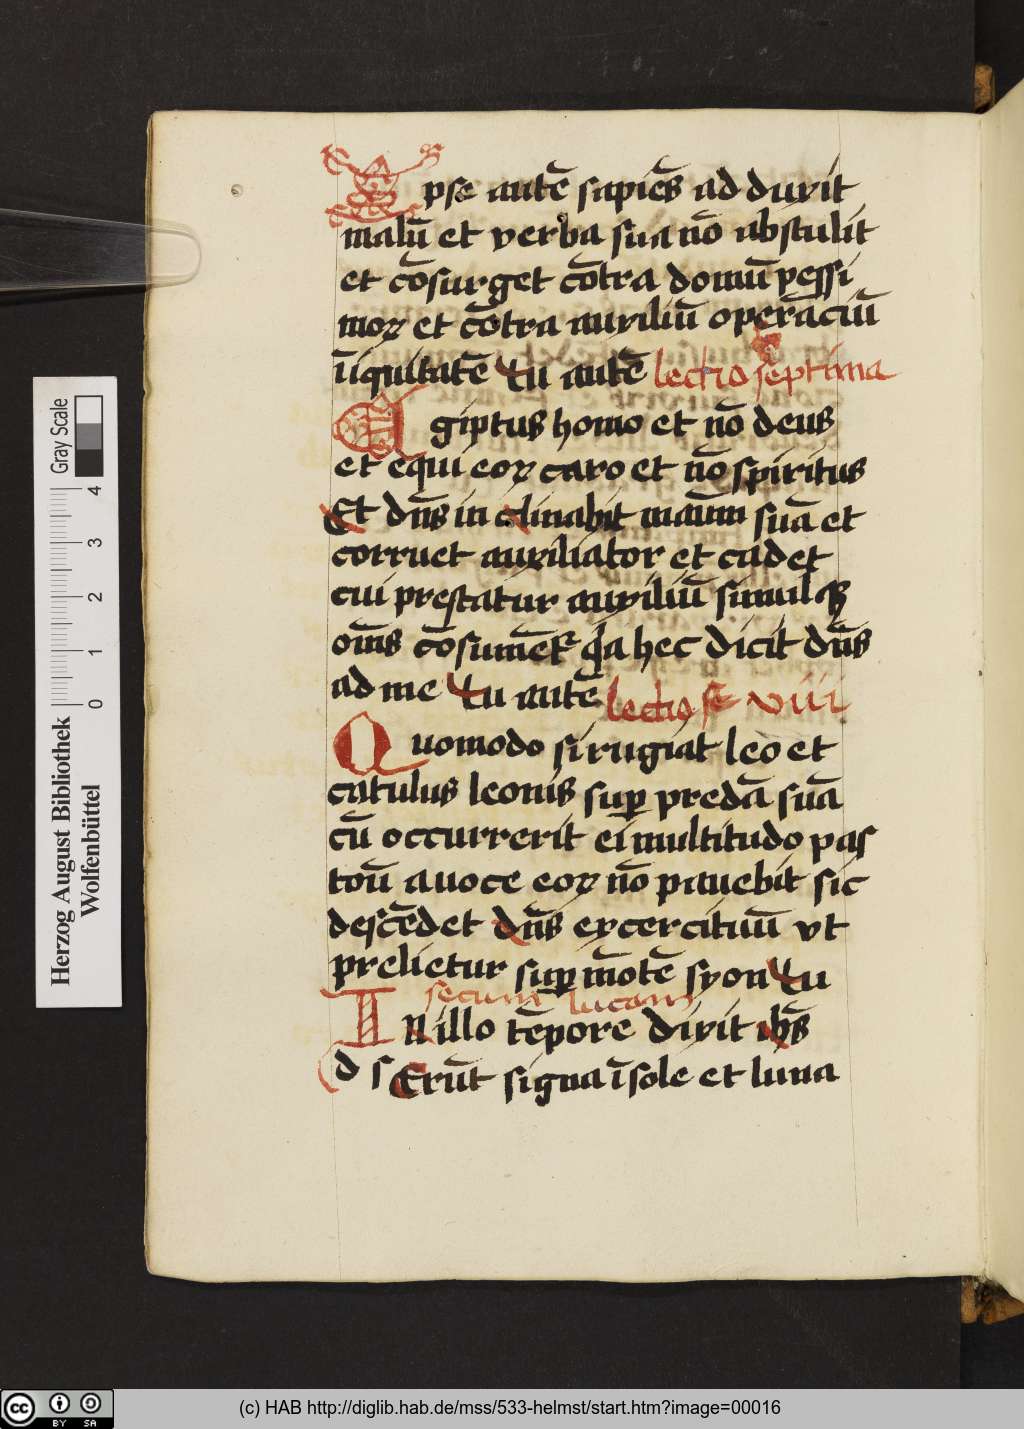 Ipse autē sapiēs ad duxit
malū et verba sua nō abstulit
et cōsurget cōtra domū pessi
moꝝ et cōtra auxiliū operāciū
īiquitatē tu autē lectio septima
Egiptus homo et nō deus
et equi eoꝝ caro et nō spiritus
Et dn̄s in clinabit manū suā et
corruet auxiliator et cadet
cui prestatur auxiliū simul qꝫ
om̄s cōsumēt᷑ qa hec dicit dn̄s
ad me tu autē lectio viii
Quomodo si rugiat leo et
catulus leonis suꝑ predā suā
cū occurrerit ei multitudo pas
toū a voce eoꝝ nō pauebit sic
descēdet dn̄s exercituū vt
prelietur suꝑ mōtē syon tu
secum lucam
In illo tēpore dixit ih̄s
d s Erūt signa ī sole et luna
Gray Scale
0 1 2 3 4
Herzog August Bibliothek
Wolfenbüttel
cc BY SA
(c) HAB http://diglib.hab.de/mss/533-helmst/start.htm?image=00016